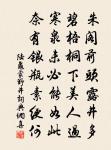 朱閣前頭露井多
碧梧桐下美人過
寒泉未必能如此
奈有銀瓶素綆何
陸龜蒙野井詞典網